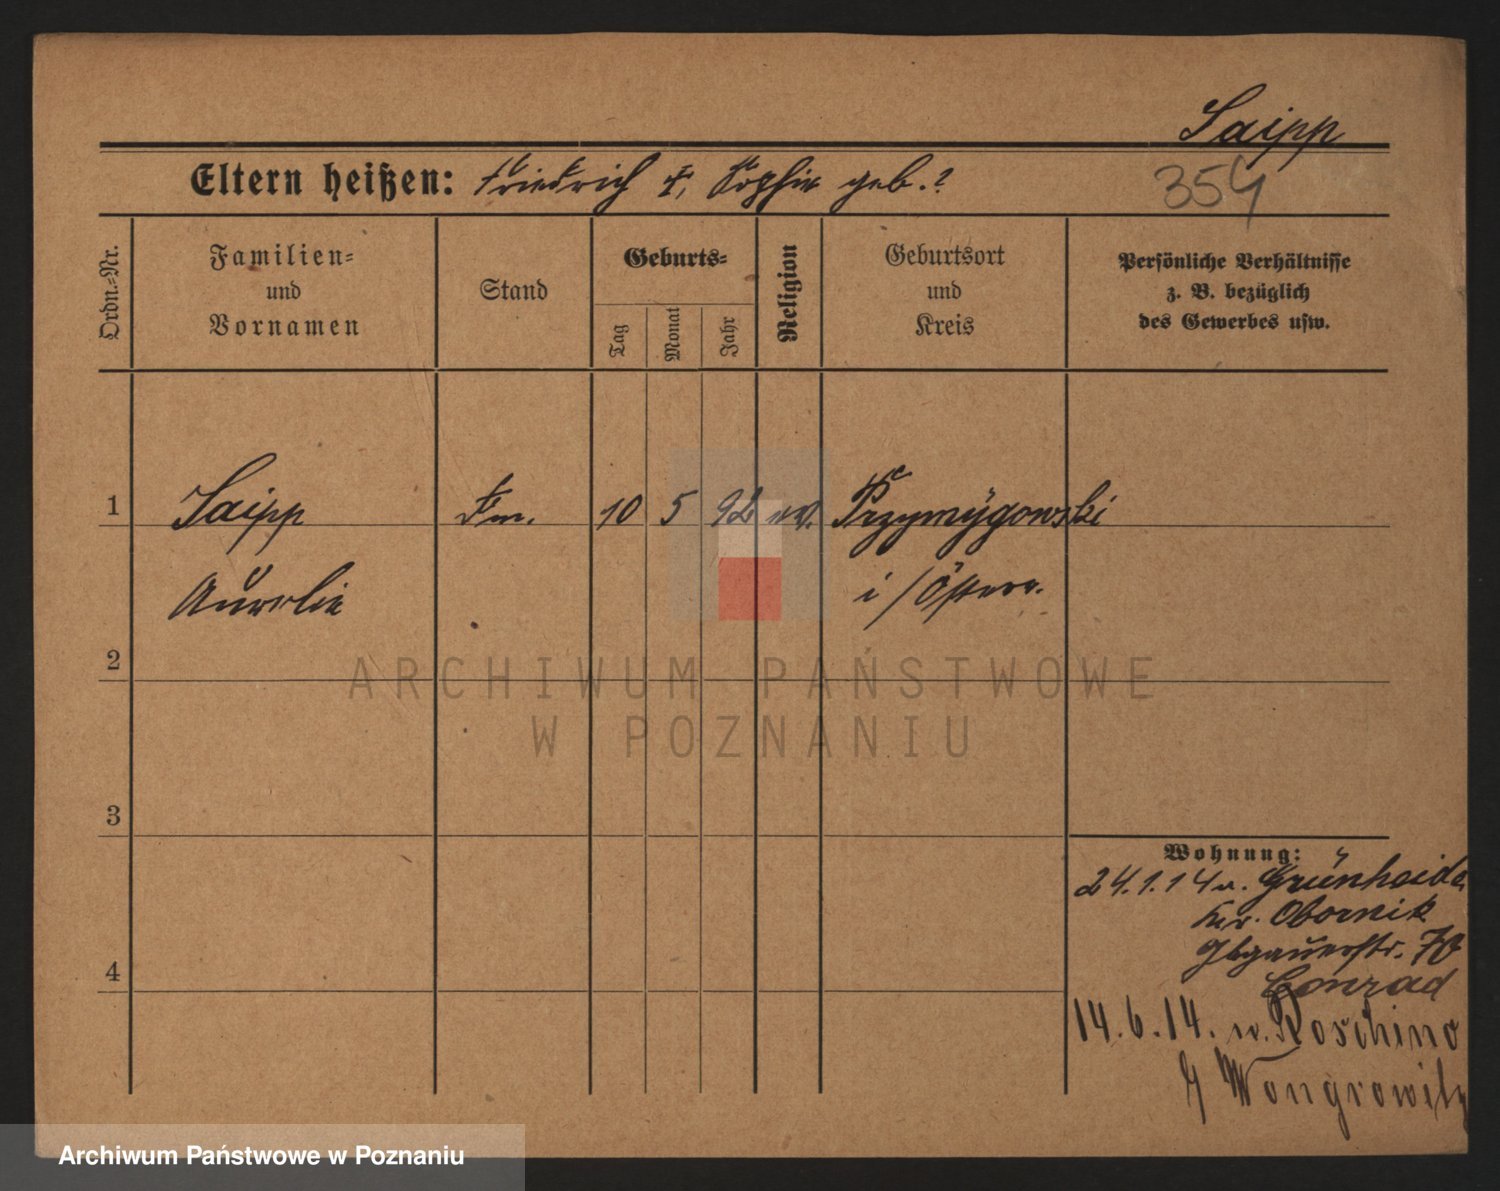 Saipp
Eltern heißen: Friedrich †, Sophie geb. ?
354
Ordn.-Nr.
Familien-
und
Vornamen
Stand
Geburts-
Tag
Monat
Jahr
Religion
Geburtsort
und
Kreis
Persönliche Verhältnisse
z. B. bezüglich
des Gewerbes usw.
1 Saipp Fm. 10 5 92 ev. Przymygowski
Aurelie i/Österr.
2
ARCHIWUM PAŃSTWOWE
W POZNANIU
3
Wohnung:
24.1.14 v. Grünheide
Kr. Obornik
Glogauerstr. 70
Conrad
14.6.14. n. Roschino
Wongrowitz
4
Archiwum Państwowe w Poznaniu